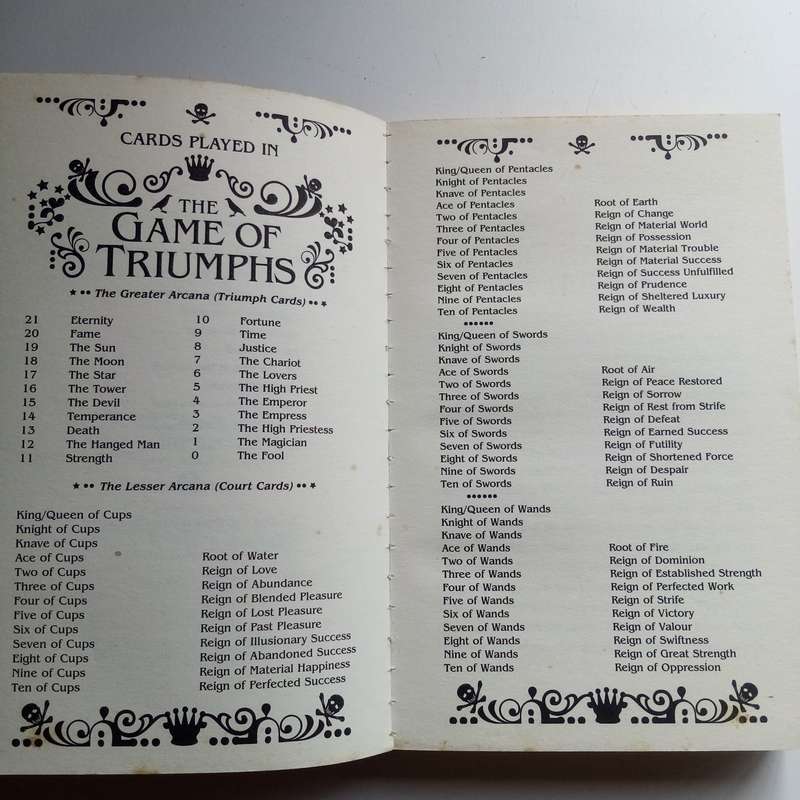 CARDS PLAYED IN
THE
GAME OF
TRIUMPHS
The Greater Arcana (Triumph Cards)
21 Eternity 10 Fortune
20 Fame 9 Time
19 The Sun 8 Justice
18 The Moon 7 The Chariot
17 The Star 6 The Lovers
16 The Tower 5 The High Priest
15 The Devil 4 The Emperor
14 Temperance 3 The Empress
13 Death 2 The High Priestess
12 The Hanged Man 1 The Magician
11 Strength 0 The Fool
The Lesser Arcana (Court Cards)
King/Queen of Cups
Knight of Cups
Knave of Cups
Ace of Cups Root of Water
Two of Cups Reign of Love
Three of Cups Reign of Abundance
Four of Cups Reign of Blended Pleasure
Five of Cups Reign of Lost Pleasure
Six of Cups Reign of Past Pleasure
Seven of Cups Reign of Illusionary Success
Eight of Cups Reign of Abandoned Success
Nine of Cups Reign of Material Happiness
Ten of Cups Reign of Perfected Success
King/Queen of Pentacles
Knight of Pentacles
Knave of Pentacles
Ace of Pentacles Root of Earth
Two of Pentacles Reign of Change
Three of Pentacles Reign of Material World
Four of Pentacles Reign of Possession
Five of Pentacles Reign of Material Trouble
Six of Pentacles Reign of Material Success
Seven of Pentacles Reign of Success Unfulfilled
Eight of Pentacles Reign of Prudence
Nine of Pentacles Reign of Sheltered Luxury
Ten of Pentacles Reign of Wealth
King/Queen of Swords
Knight of Swords
Knave of Swords
Ace of Swords Root of Air
Two of Swords Reign of Peace Restored
Three of Swords Reign of Sorrow
Four of Swords Reign of Rest from Strife
Five of Swords Reign of Defeat
Six of Swords Reign of Earned Success
Seven of Swords Reign of Futility
Eight of Swords Reign of Shortened Force
Nine of Swords Reign of Despair
Ten of Swords Reign of Ruin
King/Queen of Wands
Knight of Wands
Knave of Wands
Ace of Wands Root of Fire
Two of Wands Reign of Dominion
Three of Wands Reign of Established Strength
Four of Wands Reign of Perfected Work
Five of Wands Reign of Strife
Six of Wands Reign of Victory
Seven of Wands Reign of Valour
Eight of Wands Reign of Swiftness
Nine of Wands Reign of Great Strength
Ten of Wands Reign of Oppression